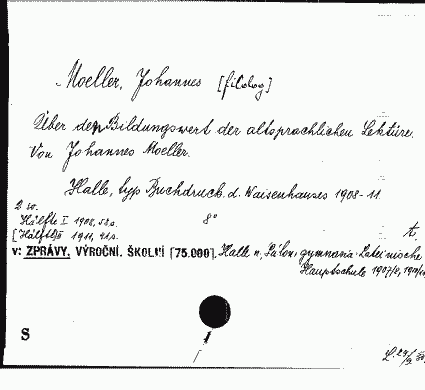 Moeller, Johannes [filolog]
Über den Bildungswert der altsprachlichen Lektüre.
Von Johannes Moeller.
Halle, typ Buchdruck. d. Waisenhauses 1908-11.
2 sv. 8°
Hälfte I 1908,
[Hälfte]II 1911,
v: ZPRÁVY, VÝROČNÍ, ŠKOLNÍ [75.000]. Halle n. gymnasia. Lateinische
Hauptschule 1907/8,
S